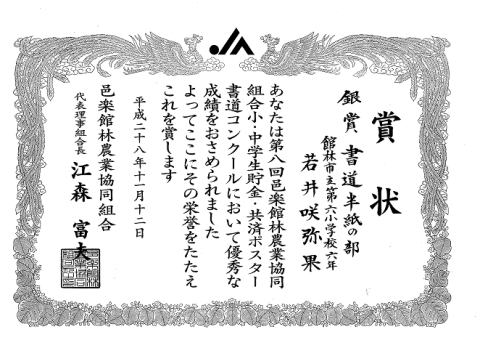 JA
賞状
銀賞、書道半紙の部
館林市立第六小学校六年
若井咲弥果
あなたは第八回邑楽館林農業協同
組合小・中学生貯金・共済ポスター
書道コンクールにおいて優秀な
成績をおさめられました
よってここにその栄誉をたたえ
これを賞します
平成二十八年十一月十二日
邑楽館林農業協同組合
代表理事組合長 江森富夫